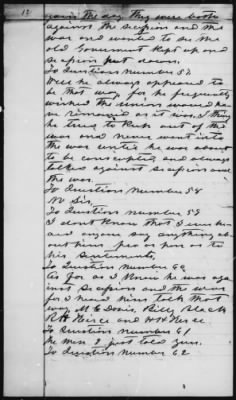 12
again the day they were both
against the secession and the
war and wanted to see the
old Goverment kept up and
secession put down.
To Question Number 52
Well he always appeared to
be that way for he frequently
wished the union would ha
ve remained as it was. I think
he tried to keep out of the
war and never went into
the war until he was about
to be conscripted and always
talked against secession and
the war.
To Question Number 58
No Sir,
To Question Number 59
I dont Know that I ever he
ard anyone say anything ab
out him pro or con as to
his sentiments,
To Question Number 60
So far as I Know he was aga
inst secession and the war
for I heard him talk that
way. M. C. Davis, Billy Black
R H Heirce and W H Heirce
To Question number 61
The men I just told you.
To Question Number 62